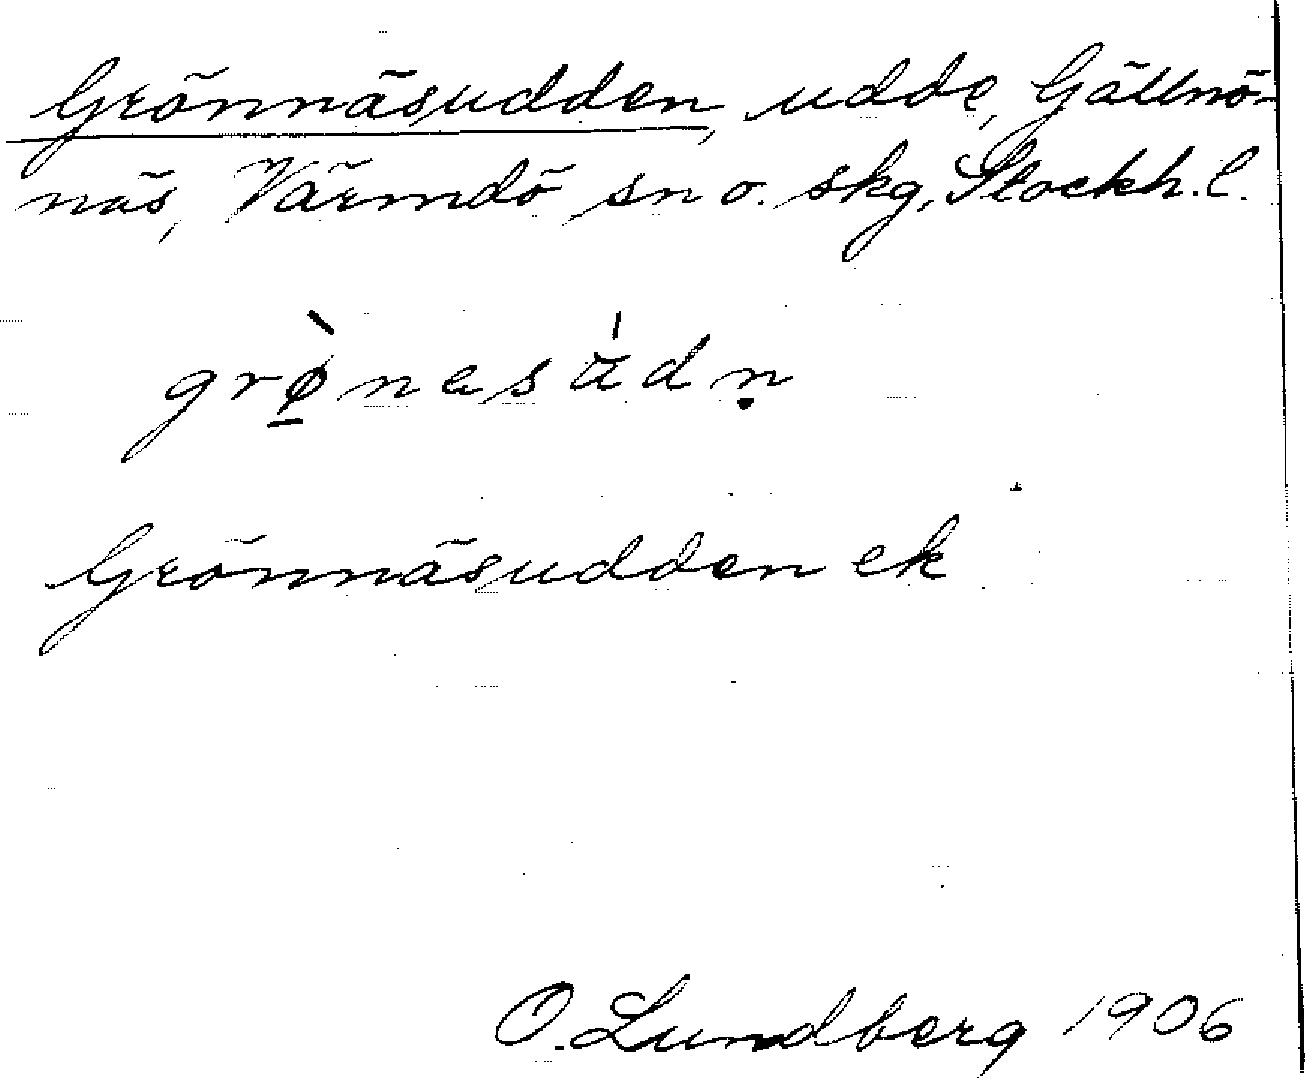 Grönnäsudden, udde, Gällnö-
näs, Värmdö sn o. skg, Stockh. l.
grø̠̀nesádṇ
Grönnäsudden ek
O. Lundberg 1906